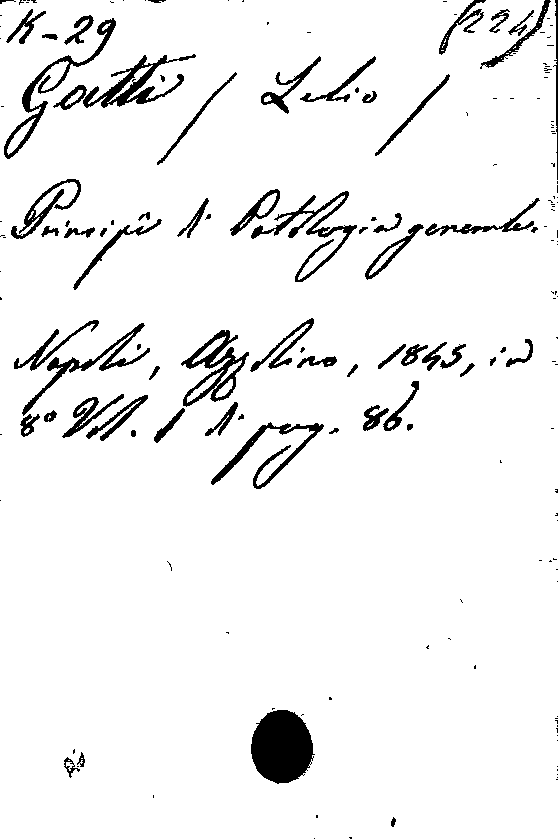 K-29 (224)
Gatti / Lelio /
Principî di Patologia generale.
Napoli, Azzolino, 1845, in
8° Vol. 1 di pag. 86.